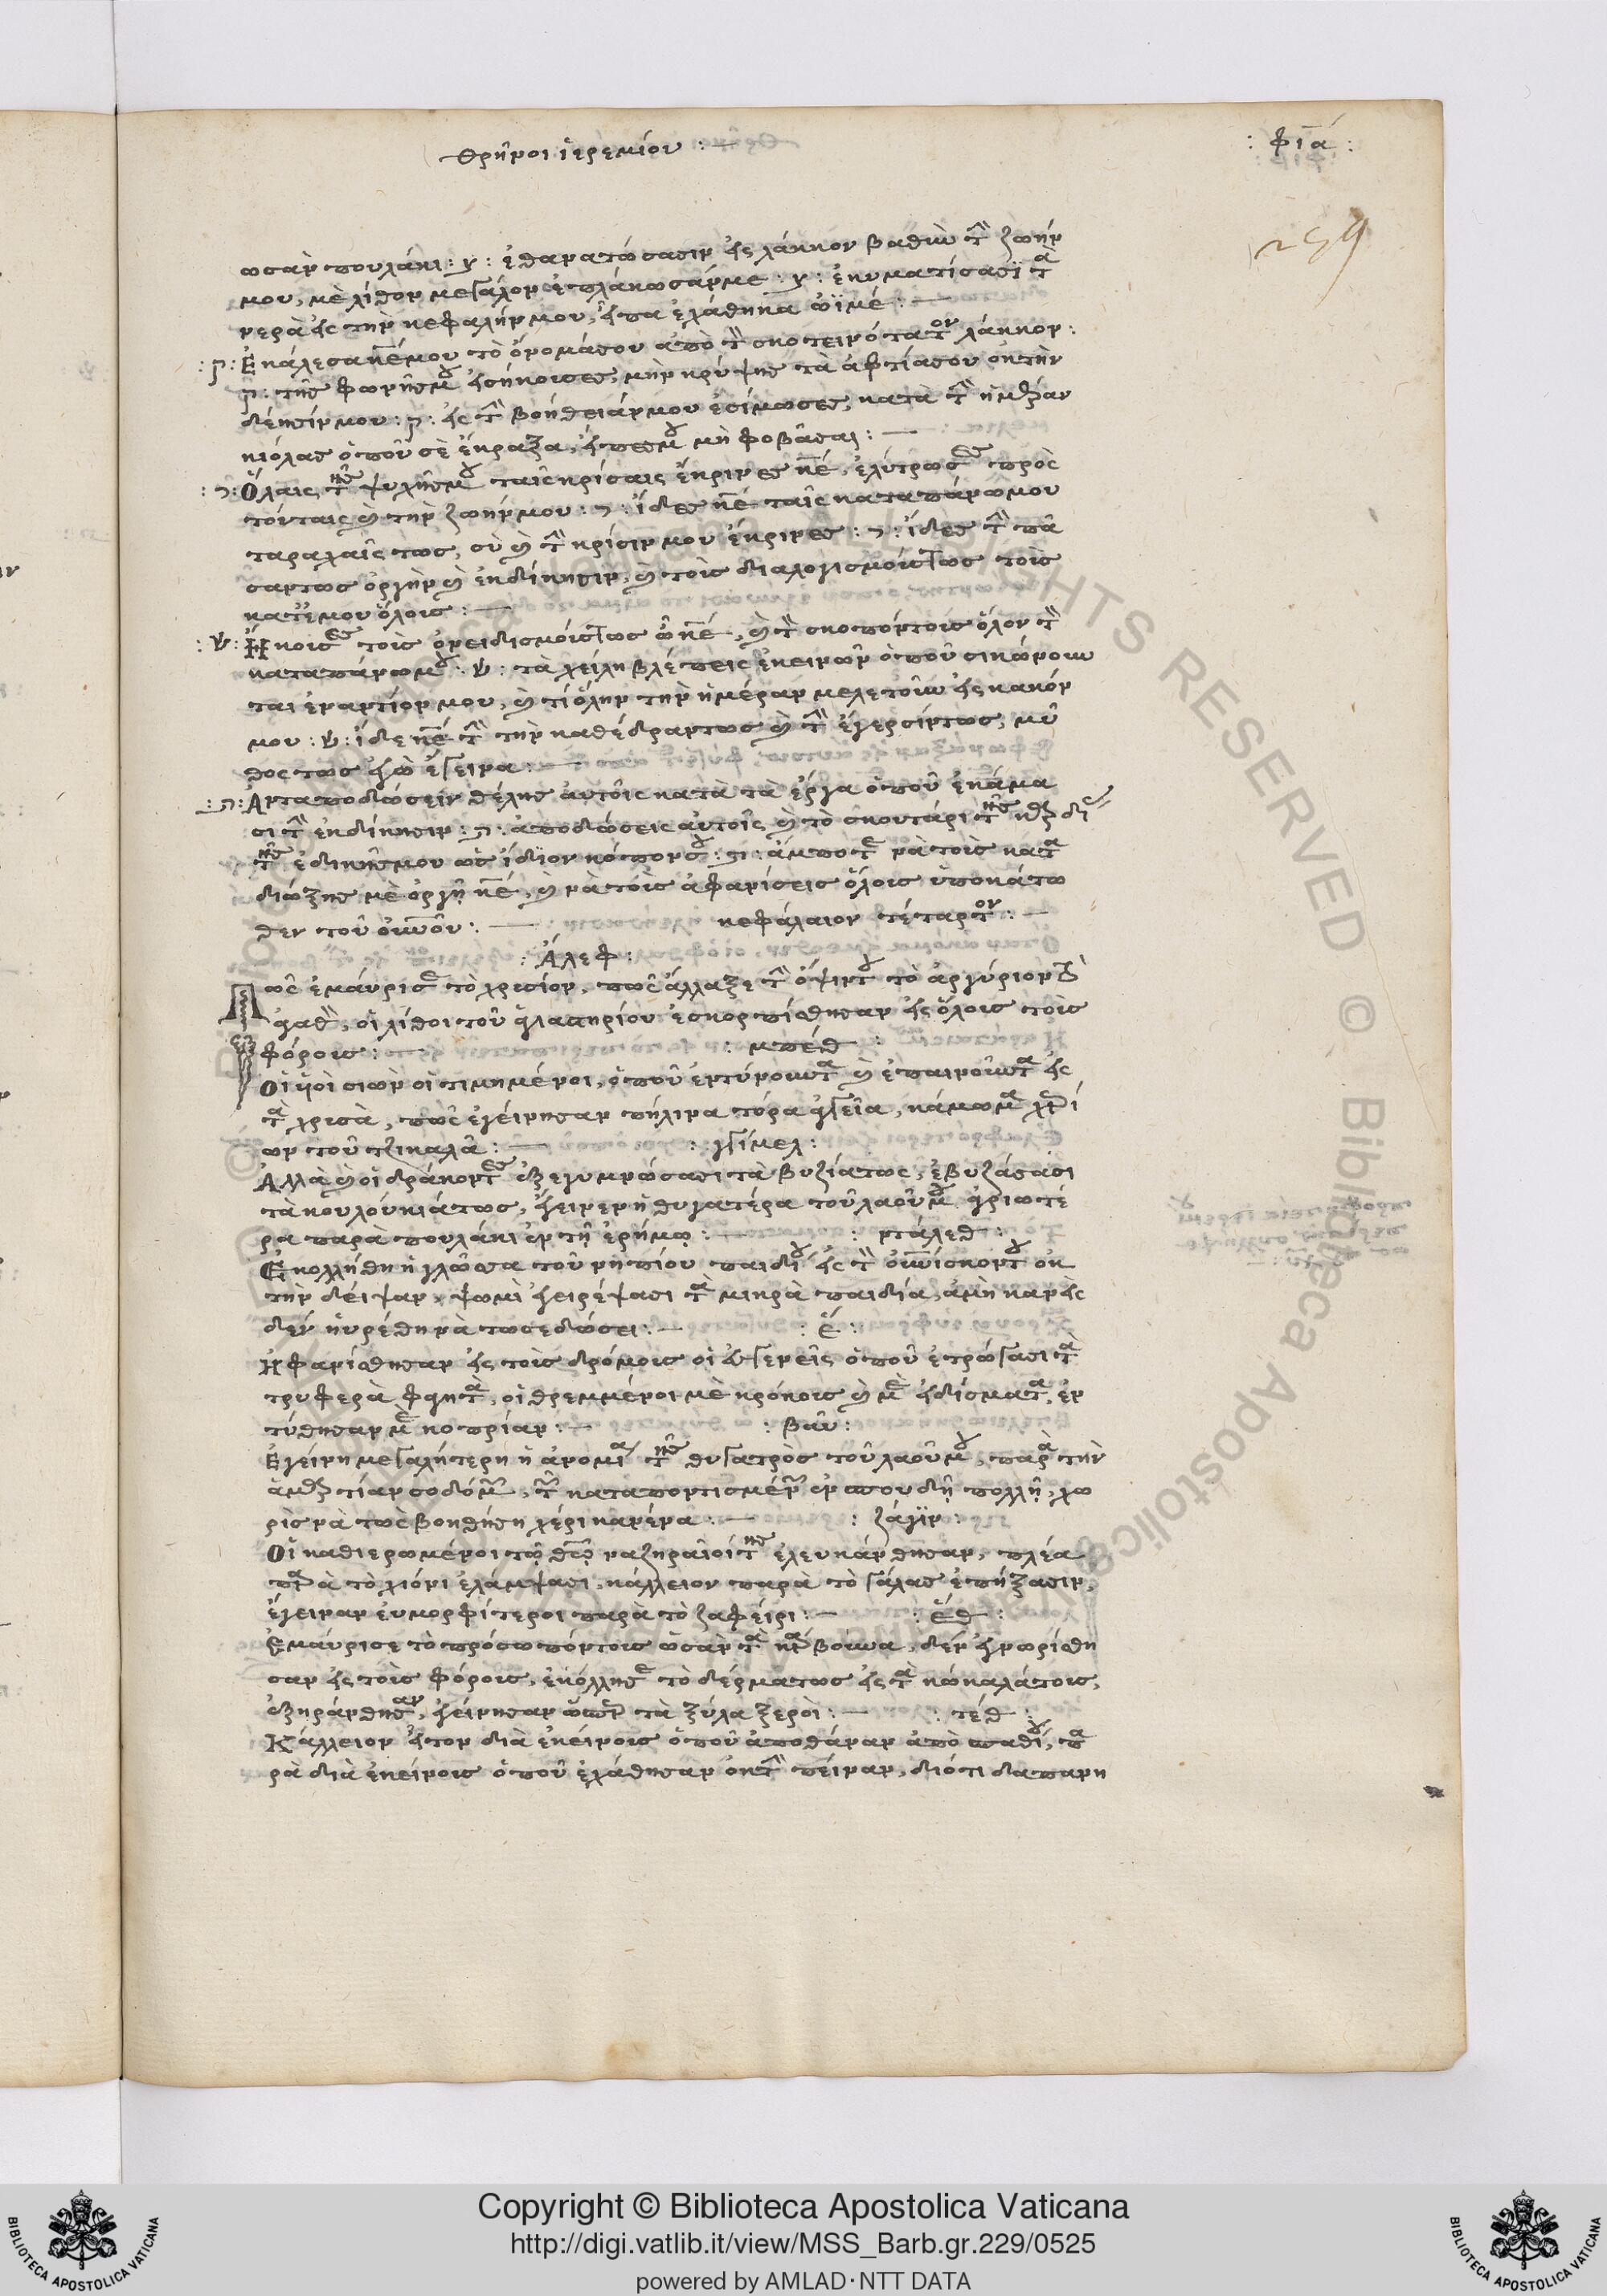 Θρῆνοι ἱερεμίου : —
: φια :
259
ωσὰν πουλάκι : γ : ἐθανατώσασιν εἰς λάκκον βαθὺν τὴν ζωήν
μου, μὲ λίθον μεγάλον ἐπλάκωσάν με : γ : ἐκυματίσασι τὰ
νερὰ εἰς τὴν κεφαλήν μου, εἶπα ἐχάθηκα ὠϊμέ : —
: ק : Ἐκάλεσα κέ μου τὸ ὄνομά σου ἀπὸ τὸν σκοτεινότατον λάκκον :
ק : τῆς φωνῆς μου εἰσήκουσες, μὴν κρύψῃς τὰ ἀφτία σου ἐκ τὴν
δέησίν μου : ק : εἰς τὴν βοήθειάν μου ἐσίμωσες, κατὰ τὴν ἡμέραν
κιόλας ὁποῦ σὲ ἔκραξα, εἶπες μου μὴ φοβᾶσαι : —
: ר : Ὅλαις τῆς ψυχῆς μου ταῖς κρίσαις ἔκρινες κέ, ἐλύτρωσες πρὸς
τούταις καὶ τὴν ζωήν μου : ר : ἴδες κέ ταῖς κατα πάνω μου
ταραχαῖς τως, σὺ καὶ τὴν κρίσιν μου ἔκρινες : ר : ἴδες τὴν πᾶ
σαν τως ὀργὴν καὶ ἐκδίκησιν, καὶ τοὺς διαλογισμούς τως τοὺς
κατ' ἐμοῦ ὅλους : —
: ש : Ἤκουσες τοὺς ὀνειδισμούς τως ὦ κέ, καὶ τὸν σκοπόν τους ὅλον τὸν
κατα πάνω μου : ש : τὰ χείλη βλέπεις ἐκεινῶν ὁποῦ σικώνουν
ται ἐναντίον μου, καὶ τί ὅλην τὴν ἡμέραν μελετοῦν εἰς κακόν
μου : ש : ἴδε κέ τὴν τὴν καθέδραν τως καὶ τὴν ἔγερσίν τως, μῦ
θος τως ἐγὼ ἔγεινα : —
: ת : Ἀνταποδώσειν θέλῃς αὐτοῖς κατὰ τὰ ἔργα ὁποῦ ἐκάμα
σι τὴν ἐκδίκησιν : ת : ἀποδώσεις αὐτοῖς καὶ τὸ σκουτάρι τῆς καρδί
τῆς ἐδικῆς μου ὡς ἴδιον κόπον σου : ת : ἄμποτε νὰ τοὺς κατα
διώξῃς μὲ ὀργῆ κέ, καὶ νὰ τοὺς ἀφανίσεις ὅλους ὑποκάτω
θεν τοῦ οὐνοῦ : — κεφάλαιον τέταρτον : —
: Ἄλεφ :
Πῶς ἐμαύρισε τὸ χρυσίον, πῶς ἄλλαξε τὴν ὄψιν του τὸ ἀργύριον τὸ
ἀγαθό, οἱ λίθοι τοῦ ἱλαστηρίου ἐσκορπίσθησαν εἰς ὅλους τοὺς
φόρους : — : μπέθ :
Οἱ υἱοὶ σιὼν οἱ τιμημένοι, ὁποῦ ἐντύνουνταν καὶ ἐπαιροῦνταν εἰς
τὰ χρυσὰ, πῶς ἐγέινησαν πήλινα τόρα ἀγγεῖα, κάμωμα χερί
ων τοῦ τζικαλᾶ : — : γγίμελ :
Ἀλλὰ καὶ οἱ δράκοντες ἐξεγυμνώσασι τὰ βυζία τως, ἐβυζάσασι
τὰ κουλούκιά τως, ἔγεινεν ἡ θυγατέρα τοῦ λαοῦ μου ἀγριωτέ
ρα παρὰ πουλάκι ἐν τῇ ἐρήμῳ : — : ντάλεθ :
Ἐκολλήθη ἡ γλῶσσα τοῦ νηπίου παιδίου εἰς τὸν οὐνίσκον του ἐκ
τὴν δείψαν, ψωμὶ ἐγειρέψασι τὰ μικρὰ παιδία, ἀμὴ κανεὶς
δὲν ηὑρέθη νὰ τως ἐδώσει : — : ἔ :
Ἠφανίσθησαν εἰς τοὺς δρόμους οἱ εὐγενεῖς ὁποῦ ἐτρώγασι τὰ
τρυφερὰ φαητὰ, οἱ θρεμμένοι μὲ κρόκους καὶ μὲ εὐδίσματα, ἐν
τύθησαν μὲ κοπρίαν : — : βαῦ :
Ἐγείνη μεγαλήτερη ἡ ἀνομία τῆς θυγατρὸς τοῦ λαοῦ μου, παρὰ τὴν
ἁμαρτίαν σοδόμων, τῶν καταποντισμένων ἐν σπουδῇ πολλῇ, χω
ρὶς νὰ τῶς βοηθήσῃ χέρι κανένα : — : ζάγϊν :
Οἱ καθιερωμένοι τῷ θεῷ ναζηραῖοί της ἐλευκάνθησαν, πλέα
παρὰ τὸ χιόνι ἐλάμψασι, κάλλειον παρὰ τὸ γάλας ἐπήξασιν,
ἔγειναν εὐμορφίτεροι παρὰ τὸ ζαφείρι : — : ἔθ :
Ἐμαύρισε τὸ πρόσωπόν τους ὡσὰν τὰ κάρβουνα, δὲν ἐγνωρίσθη
σαν εἰς τοὺς φόρους, ἐκόλλησε τὸ δέρμα τως εἰς τὰ κώκαλά τους,
ἐξηράνθησαν, ἐγείνησαν ὥσπερ τὰ ξύλα ξεροὶ : — : τέθ :
Κάλλειον ἦτον διὰ ἐκείνους ὁποῦ ἀποθάναν ἀπὸ σπαθίου, πα
ρὰ διὰ ἐκείνους ὁποῦ ἐχάθησαν ἐκ τὴν πεῖναν, διότι δαπανη
Copyright © Biblioteca Apostolica Vaticana
http://digi.vatlib.it/view/MSS_Barb.gr.229/0525
powered by AMLAD·NTT DATA
BIBLIOTECA APOSTOLICA VATICANA
BIBLIOTECA APOSTOLICA VATICANA